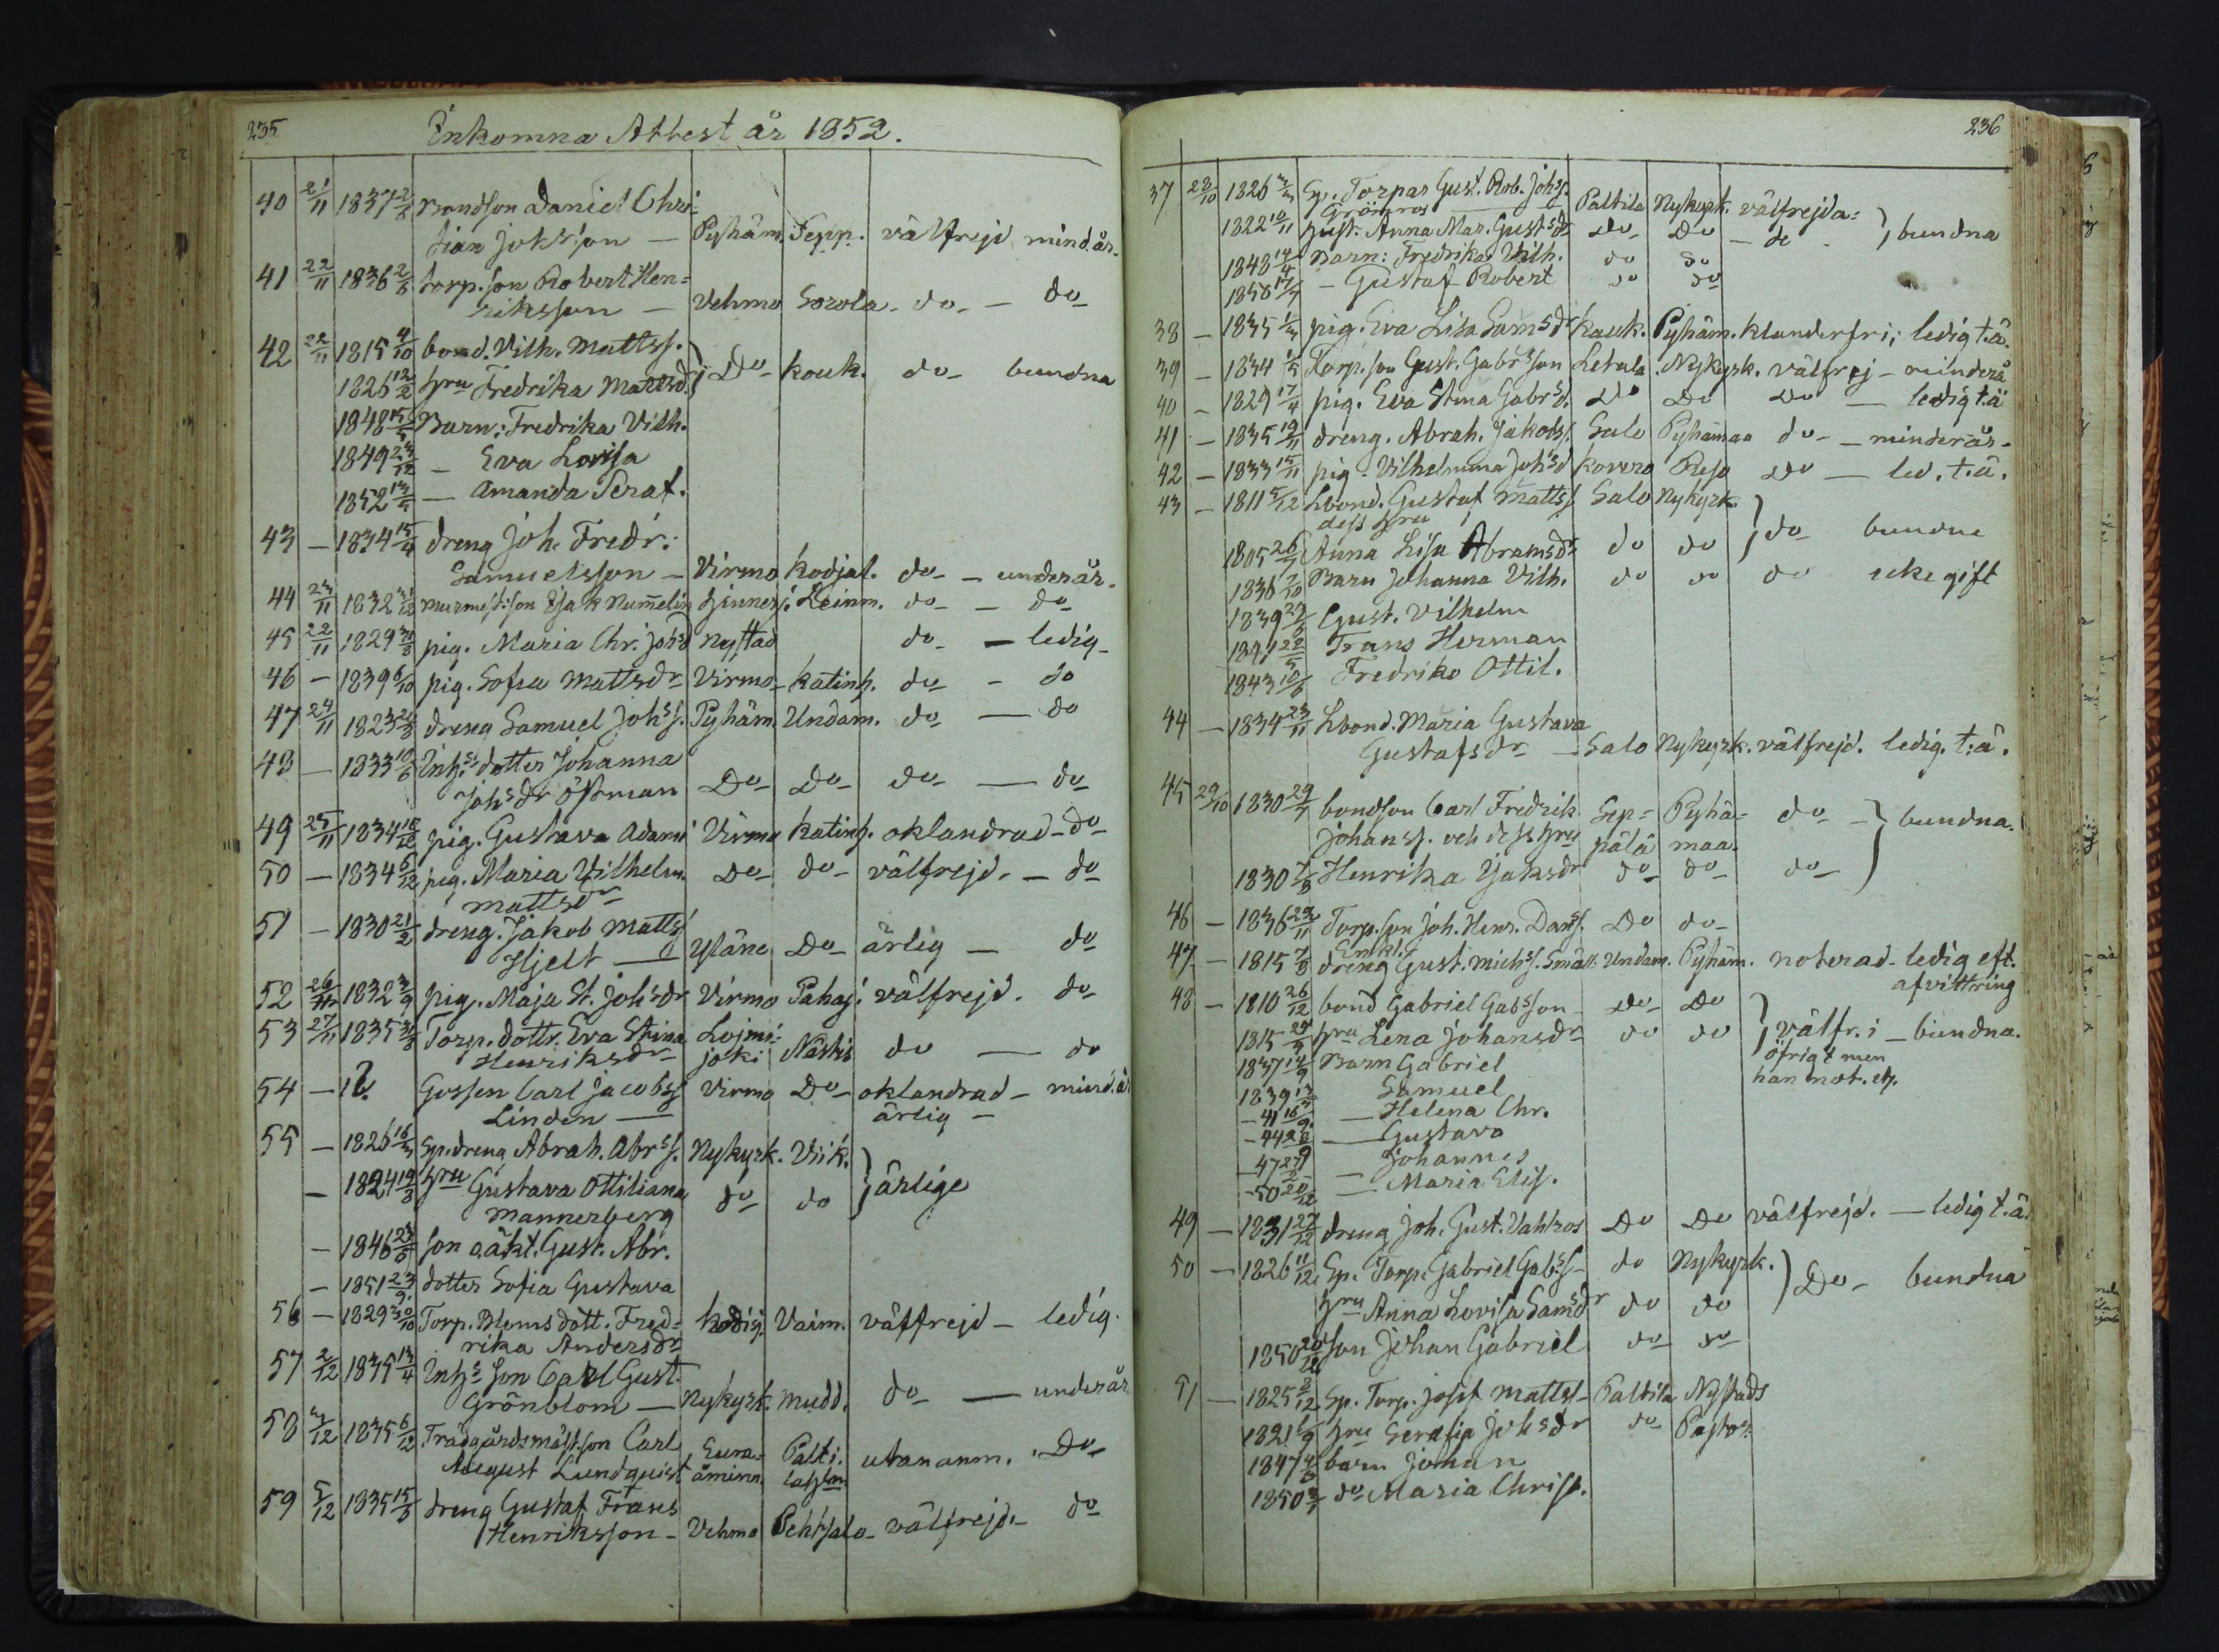 235
Inkomna Attest år 1852.
40 21/11 1837 2/8 Bondson Daniel Chri-
stian Johsson — Pyhäm. Sepp. välfrejd mind.år.
41 22/11 1836 2/8 torp. son Robert Hen=
riksson — Vehmo Sorola do — do
42 22/11 1815 4/10 bond. Vilh. Mattss.
1826 12/2 hru Fredrika Mattsd. } Do Kouk. do bundna
1848 Barn: Fredrika Vilh.
1849 23/12 — Eva Lovisa
1852 — Amanda Seraf.
43 — 1834 15/4 dreng Joh. Fredr.
Samuelsson — Virmo Kodjal. do — underår.
44 23/11 1832 31/12 murmest:son Isak Numelin Hinnerj. Leinm. do — do
45 22/11 1829 pig. Maria Chr. Johsd Nystad do — ledig
46 — 1839 6/10 pig. Sofia Mattsdr Virmo Katinh. do — do
47 24/11 1823 dreng Samuel Johss. Pyhäm. Undam. do — do
48 — 1833 10/6 Inhs dotter Johanna
Johsdr Östman Do Do do — do
49 25/11 1834 pig. Gustava Adams Virmo Katinh. oklandrad — do
50 — 1834 6/12 pig. Maria Vilhelm. Do do välfrejd. — do
Mattsdr
51 — 1830 21/2 dreng. Jakob Matts
Hjelt — Yläne Do ärlig — do
52 26/11 1832 3/9 pig. Maja St. Johsdr Virmo Pahaj. välfrejd. do
53 27/11 1835 Torp. dottr. Eva Stina Lojmi-
Henriksdr joki Näshi do — do
54 — 1? Gossen Carl Jacobss Virmo Do oklandrad — mind.å
Linden — ärlig —
55 — 1826 Sp. dreng Abrah. Abrss. Nykyrk. Viik.
— 1824 19/8 hru Gustava Ottiliana do do } ärlige
Mannerberg
— 1846 son oäkt. Gust. Abr.
— 1851 23/9 dotter Sofia Gustava
56 — 1829 30/10 Torp. Bloms dott. Fred- Vaim. välfrejd — ledig.
rika Andersdr
57 2/12 1835 13/4 Inhs son Carl Gust.
Grönblom — Nykyrk. Mudd. do — underår
58 3/12 1835 6/12 Trädgårdsmäst. son Carl Eura- Palti-
August Lundquist åminn. utan anm. Do
59 5/12 1835 15/8 dreng Gustaf Frans
Henriksson — Vehmo Pehtsalo välfrejd. — do
236
37 28/10 1826 Sp. Torpar Gust. Rob. Johss. Paltila Nykyrk. välfrejda:
Grönroos
1822 10/11 hust. Anna Mar. Gustsdr do Do — do } bundna
1848 14/4 Barn: Fredrika Vilh. do do
1850 — Gustaf Robert do do
38 — 1835 1/3 pig. Eva Lisa Samsdr Kauk. Pyhäm. klanderfri; ledig t.ä.
39 — 1834 Torp. son Gust. Gabrsson Letala Nykyrk. välfrej — minderå
40 — 1829 17/4 pig. Eva Stina Gabrsd. Do Do Do — ledig t.ä
41 — 1835 19/11 dreng. Abrah. Jakobss. Salo Pyhämaa do — minderår
42 — 1833 15/11 pig. Vilhelmina Johsd Kovero Reso Do — led. t.ä.
43 — 1811 5/12 Lbond. Gustaf Mattss Salo Nykyrk.
dess hru
1805 26/7 Anna Lisa Abramsdr do do } do bundne
1836 7/10 Barn Johanna Vilh. do do do icke gift
1839 Gust. Vilhelm
1841 22/5 Frans Herman
1843 10/6 Fredrika Ottil.
44 — 1834 23/11 Lbond. Maria Gustava
Gustafsdr — Salo Nykyrk. välfrejd. ledig. t:ä.
45 29/10 1830 29/7 bondson Carl Fredrik Sep= Pyhä= do } bundna.
Johanss. och dess hru pälä maa.
1830 7/8 Henrika Isaksdr do do do
46 — 1836 29/11 Torp. son Joh. Henr. Danss. Do do
47 — 1815 7/8 Enkl.
dreng Gust. Michss. Smält Undam. Pyhäm. noterad — ledig eft.
afvittring
48 — 1810 26/12 bond Gabriel Gabsson Do Do
1815 hru Lena Johansdr do do } välfr. i — bundna.
1837 14/9 Barn Gabriel öfrigt men
1839 — Samuel han not.
— 41 — Helena Chr.
— 44 — Gustava
— 47 — Johannes
— 50 20/12 — Maria Elis.
49 — 1831 27/12 dreng Joh. Gust. Vahlros Do Do välfrejd. — ledig t.ä.
50 — 1826 11/12 Sp. Torp. Gabriel Gabss do Nykyrk.
hru Anna Lovisa Samsdr do do } Do bundna
1850 son Johan Gabriel do do
51 — 1825 8/12 Sp. Torp. Josef Mattss Paltila Nystads
1821 hru Serafia Johsdr do Pastor.
1847 barn Johan
1850 do Maria Christ.